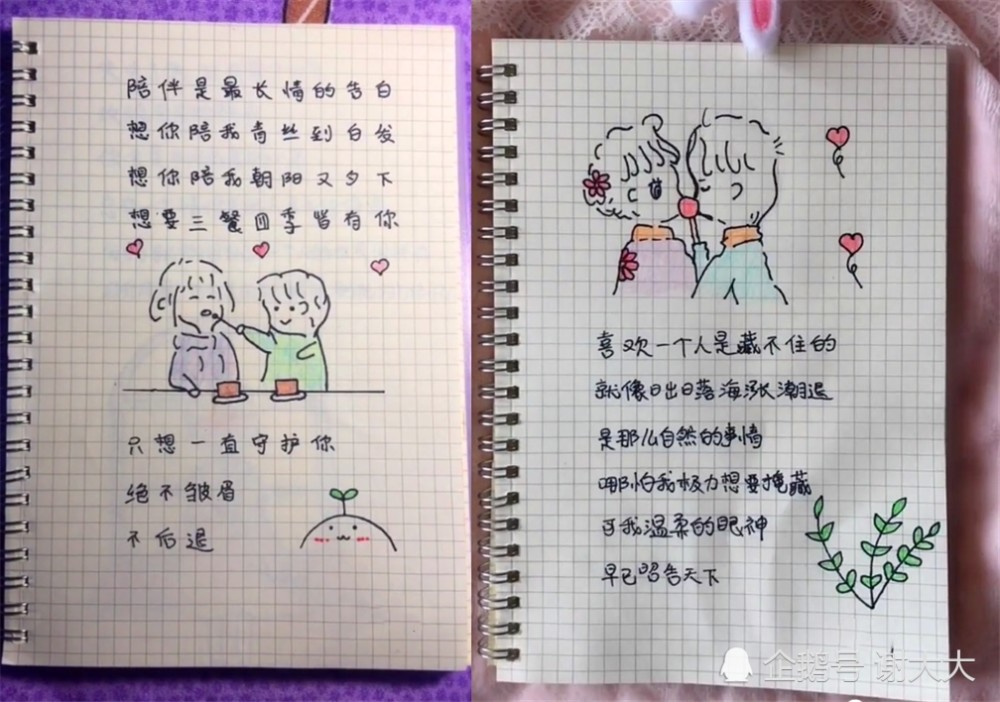 陪伴是最长情的告白
想你陪我青丝到白发
想你陪我朝阳又夕下
想要三餐四季皆有你
只想一直守护你
绝不皱眉
不后退
喜欢一个人是藏不住的
就像日出日落海涨潮退
是那么自然的事情
哪怕我极力想要掩藏
可我温柔的眼神
早已昭告天下
企鹅号 谢大大